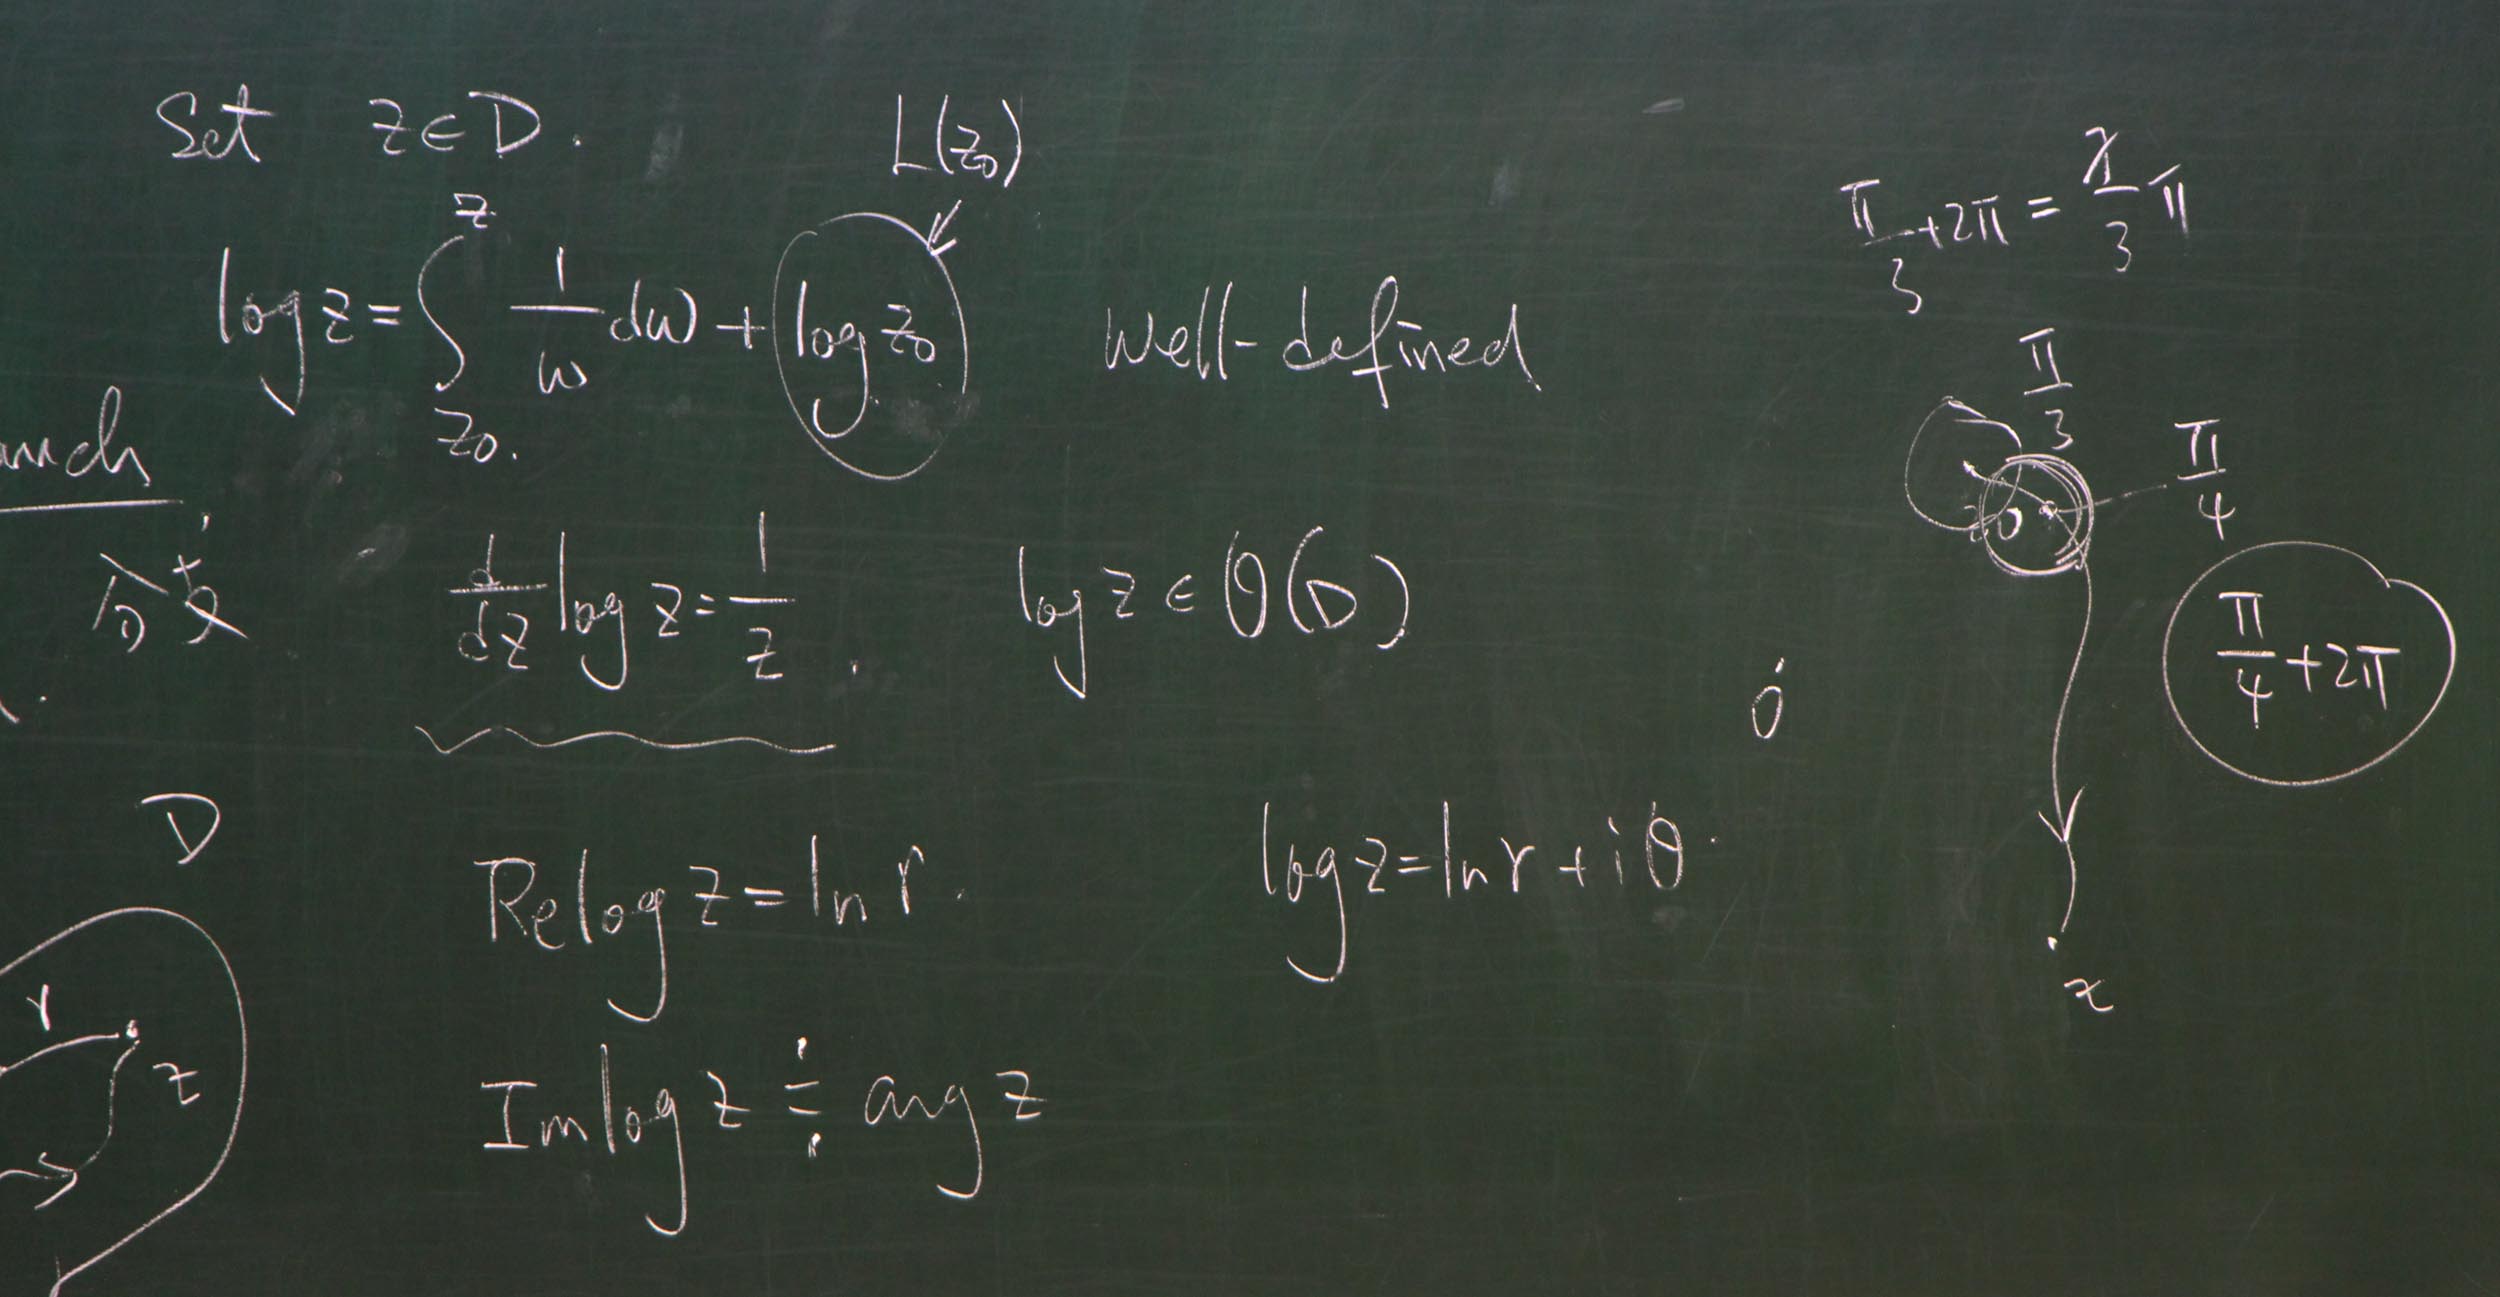 Set z∈D.
L(z₀)
log z = ∫_{z₀}^{z} 1/w dw + log z₀ well-defined
分支
d/dz log z = 1/z. log z ∈ O(D)
D
Re log z = ln r. log z = ln r + iθ.
r
z
Im log z ≑ arg z
π/3 + 2π = 7/3 π
π/3
π/4
z₀
π/4 + 2π
0
z